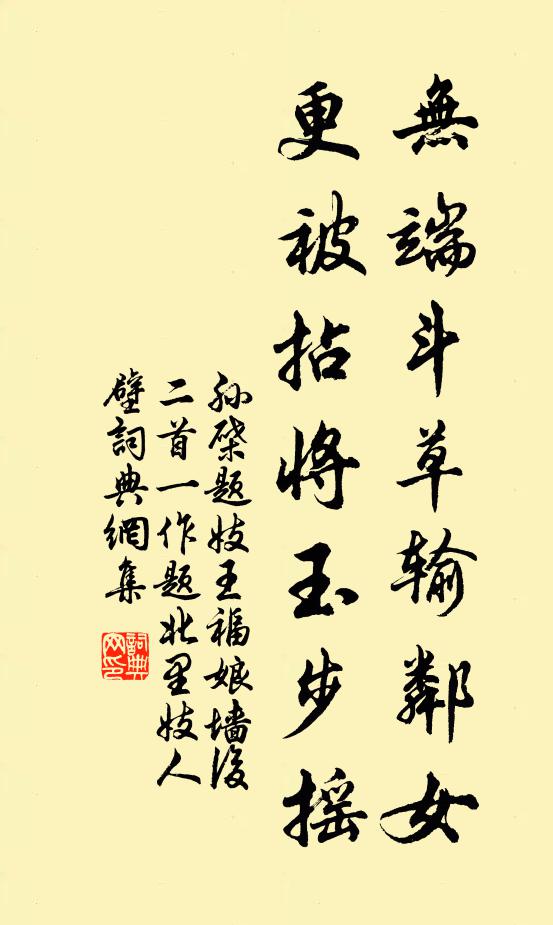 無端斗草輸鄰女
更被拈將玉步摇
孫棨題妓王福娘墙後
二首一作題北里妓人
壁詞典網集
詞典
网印